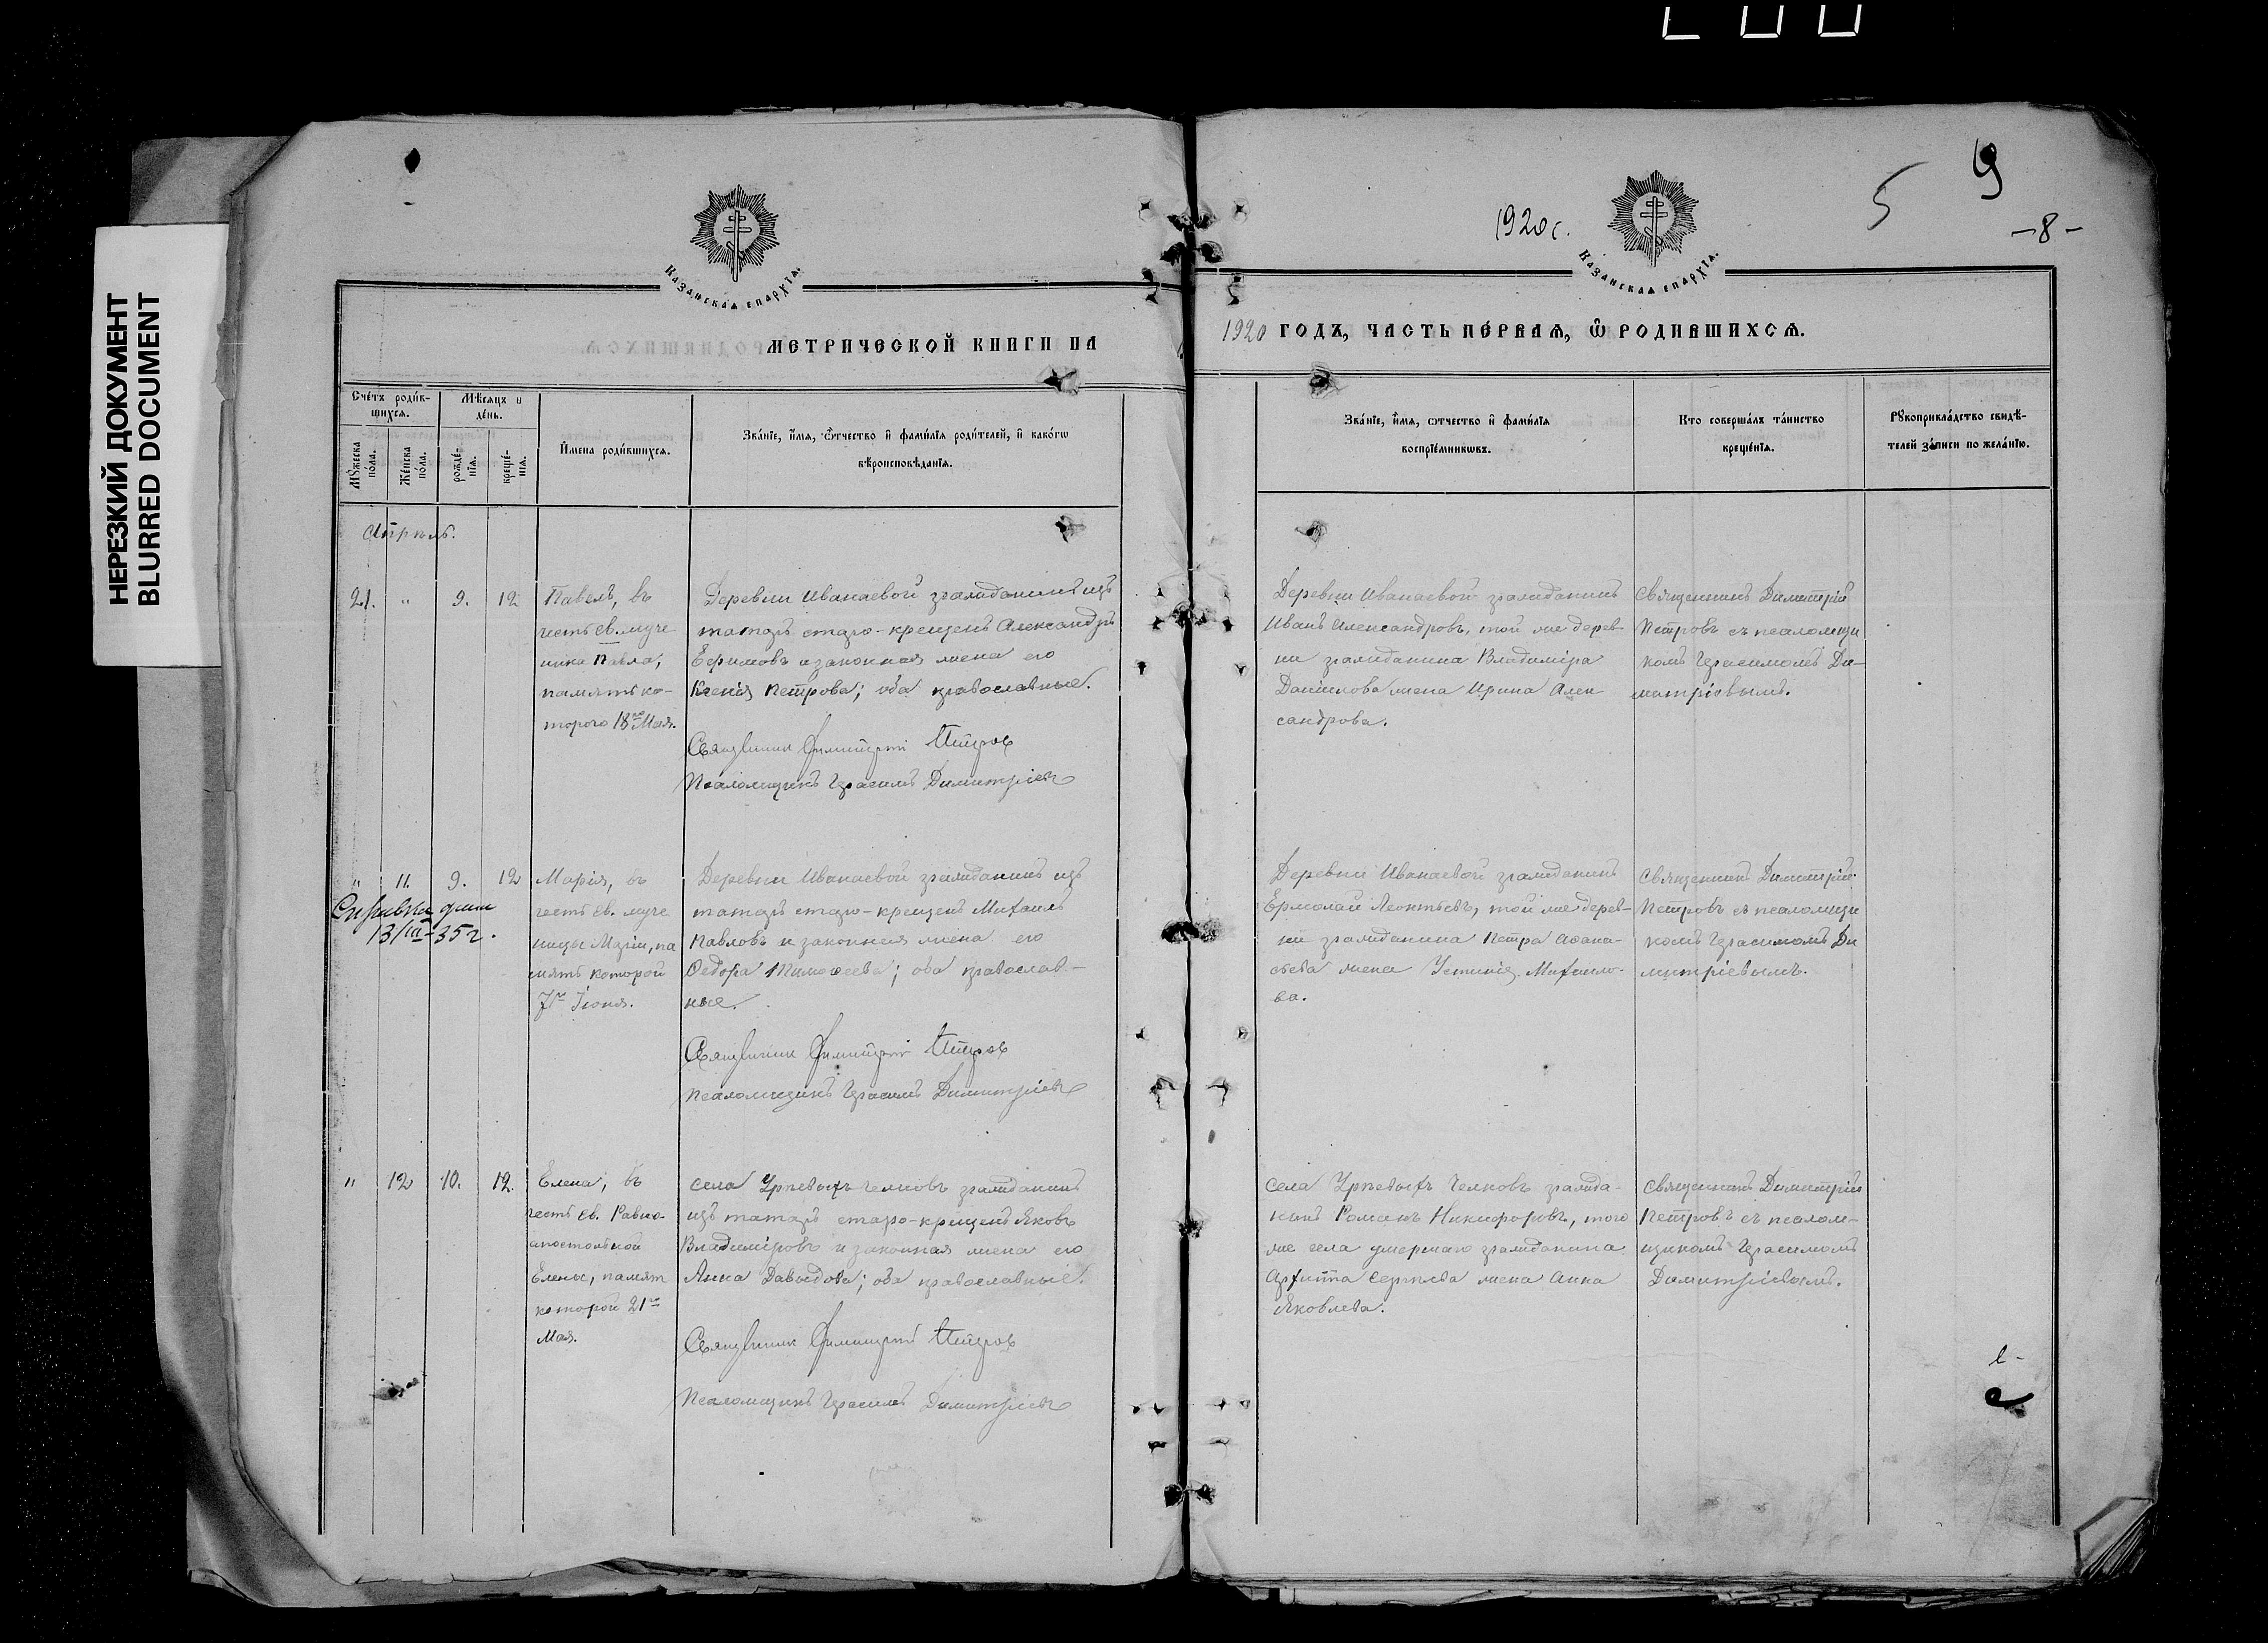 НЕРЕЗКИЙ ДОКУМЕНТ
BLURRED DOCUMENT
Казанская епархїа.
МЕТРИЧЕСКОЙ КНИГИ НА
Сче́тъ роди́в-
шихся.
Мѣсяцъ и
де́нь.
Мꙋ́жеска
по́ла.
Же́нска
по́ла.
рожде́-
нїя.
креще́-
нїя.
И́мена роди́вшихся.
Зва́нїе, и́мя, ѻ҆́тчество и҆ фами́лїя роди́телей, и҆ како́гѡ
вѣроисповѣданїя.
Апрѣль.
21.
"
9.
12
Павелъ, въ
честь св. муче-
ника Павла,
память ко-
тораго 18го Мая.
Деревни Иванаевой гражданинъ изъ
татаръ старо-крещенъ Александръ
Ефимовъ и законная жена его
Ксенія Петрова; оба православные.
Священник Димитрій Петров
Псаломщикъ Герасимъ Димитріевъ
"
11.
9.
12
Справка дана
13/III-35 г.
Марія, въ
честь св. муче
ницы Маріи, па
мять которой
7го Іюня.
Деревни Иванаевой гражданинъ изъ
татаръ старо-крещенъ Михаилъ
Павловъ и законная жена его
Ѳедора Тимоѳеева; оба православ-
ные.
Священник Димитрій Петров
Псаломщикъ Герасимъ Димитріевъ
"
12
10.
12.
Елена, въ
честь св. Равно-
апостольной
Елены, памят
которой 21го
Мая.
Села Урѣевыхъ Челновъ гражданинъ
изъ татаръ старо-крещенъ Яковъ
Владиміровъ и законная жена его
Анна Давыдова; оба православные.
Священник Димитрій Петров
Псаломщикъ Герасимъ Димитріевъ
1920 г.
5
9
-8-
Казанская епархїа.
1920 ГОДЪ, ЧАСТЬ ПЕ́РВАЯ, Ѽ РОДИВШИХСѦ.
Зва́нїе, и́мя, ѻтчество и҆ фами́лїя
воспрїе́мникѡвъ.
Кто соверша́лъ та́инство
креще́нїя.
Рꙋкоприкла́дство свидѣ́-
телей за́писи по жела́нїю.
Деревни Иванаевой гражданинъ
Иванъ Александровъ, той же дерев-
ни гражданина Владиміра
Даніилова жена Ирина Алек
сандрова.
Священникъ Димитрій
Петровъ съ псаломщи
комъ Герасимомъ Ди-
митріевымъ.
Деревни Иванаевой гражданинъ
Ермолай Леонтьевъ, той же дерев-
ни гражданина Петра Аѳана-
сьева жена Устинія Михаило-
ва.
Священникъ Димитрій
Петровъ съ псаломщи
комъ Герасимомъ Ди
митріевымъ.
Села Урѣевыхъ Челновъ гражда-
нинъ Романъ Никифоровъ, того
же села умершаго гражданина
Архипа Сергѣева жена Анна
Яковлева.
Священникъ Димитрій
Петровъ съ псалом-
щикомъ Герасимомъ
Димитріевымъ.